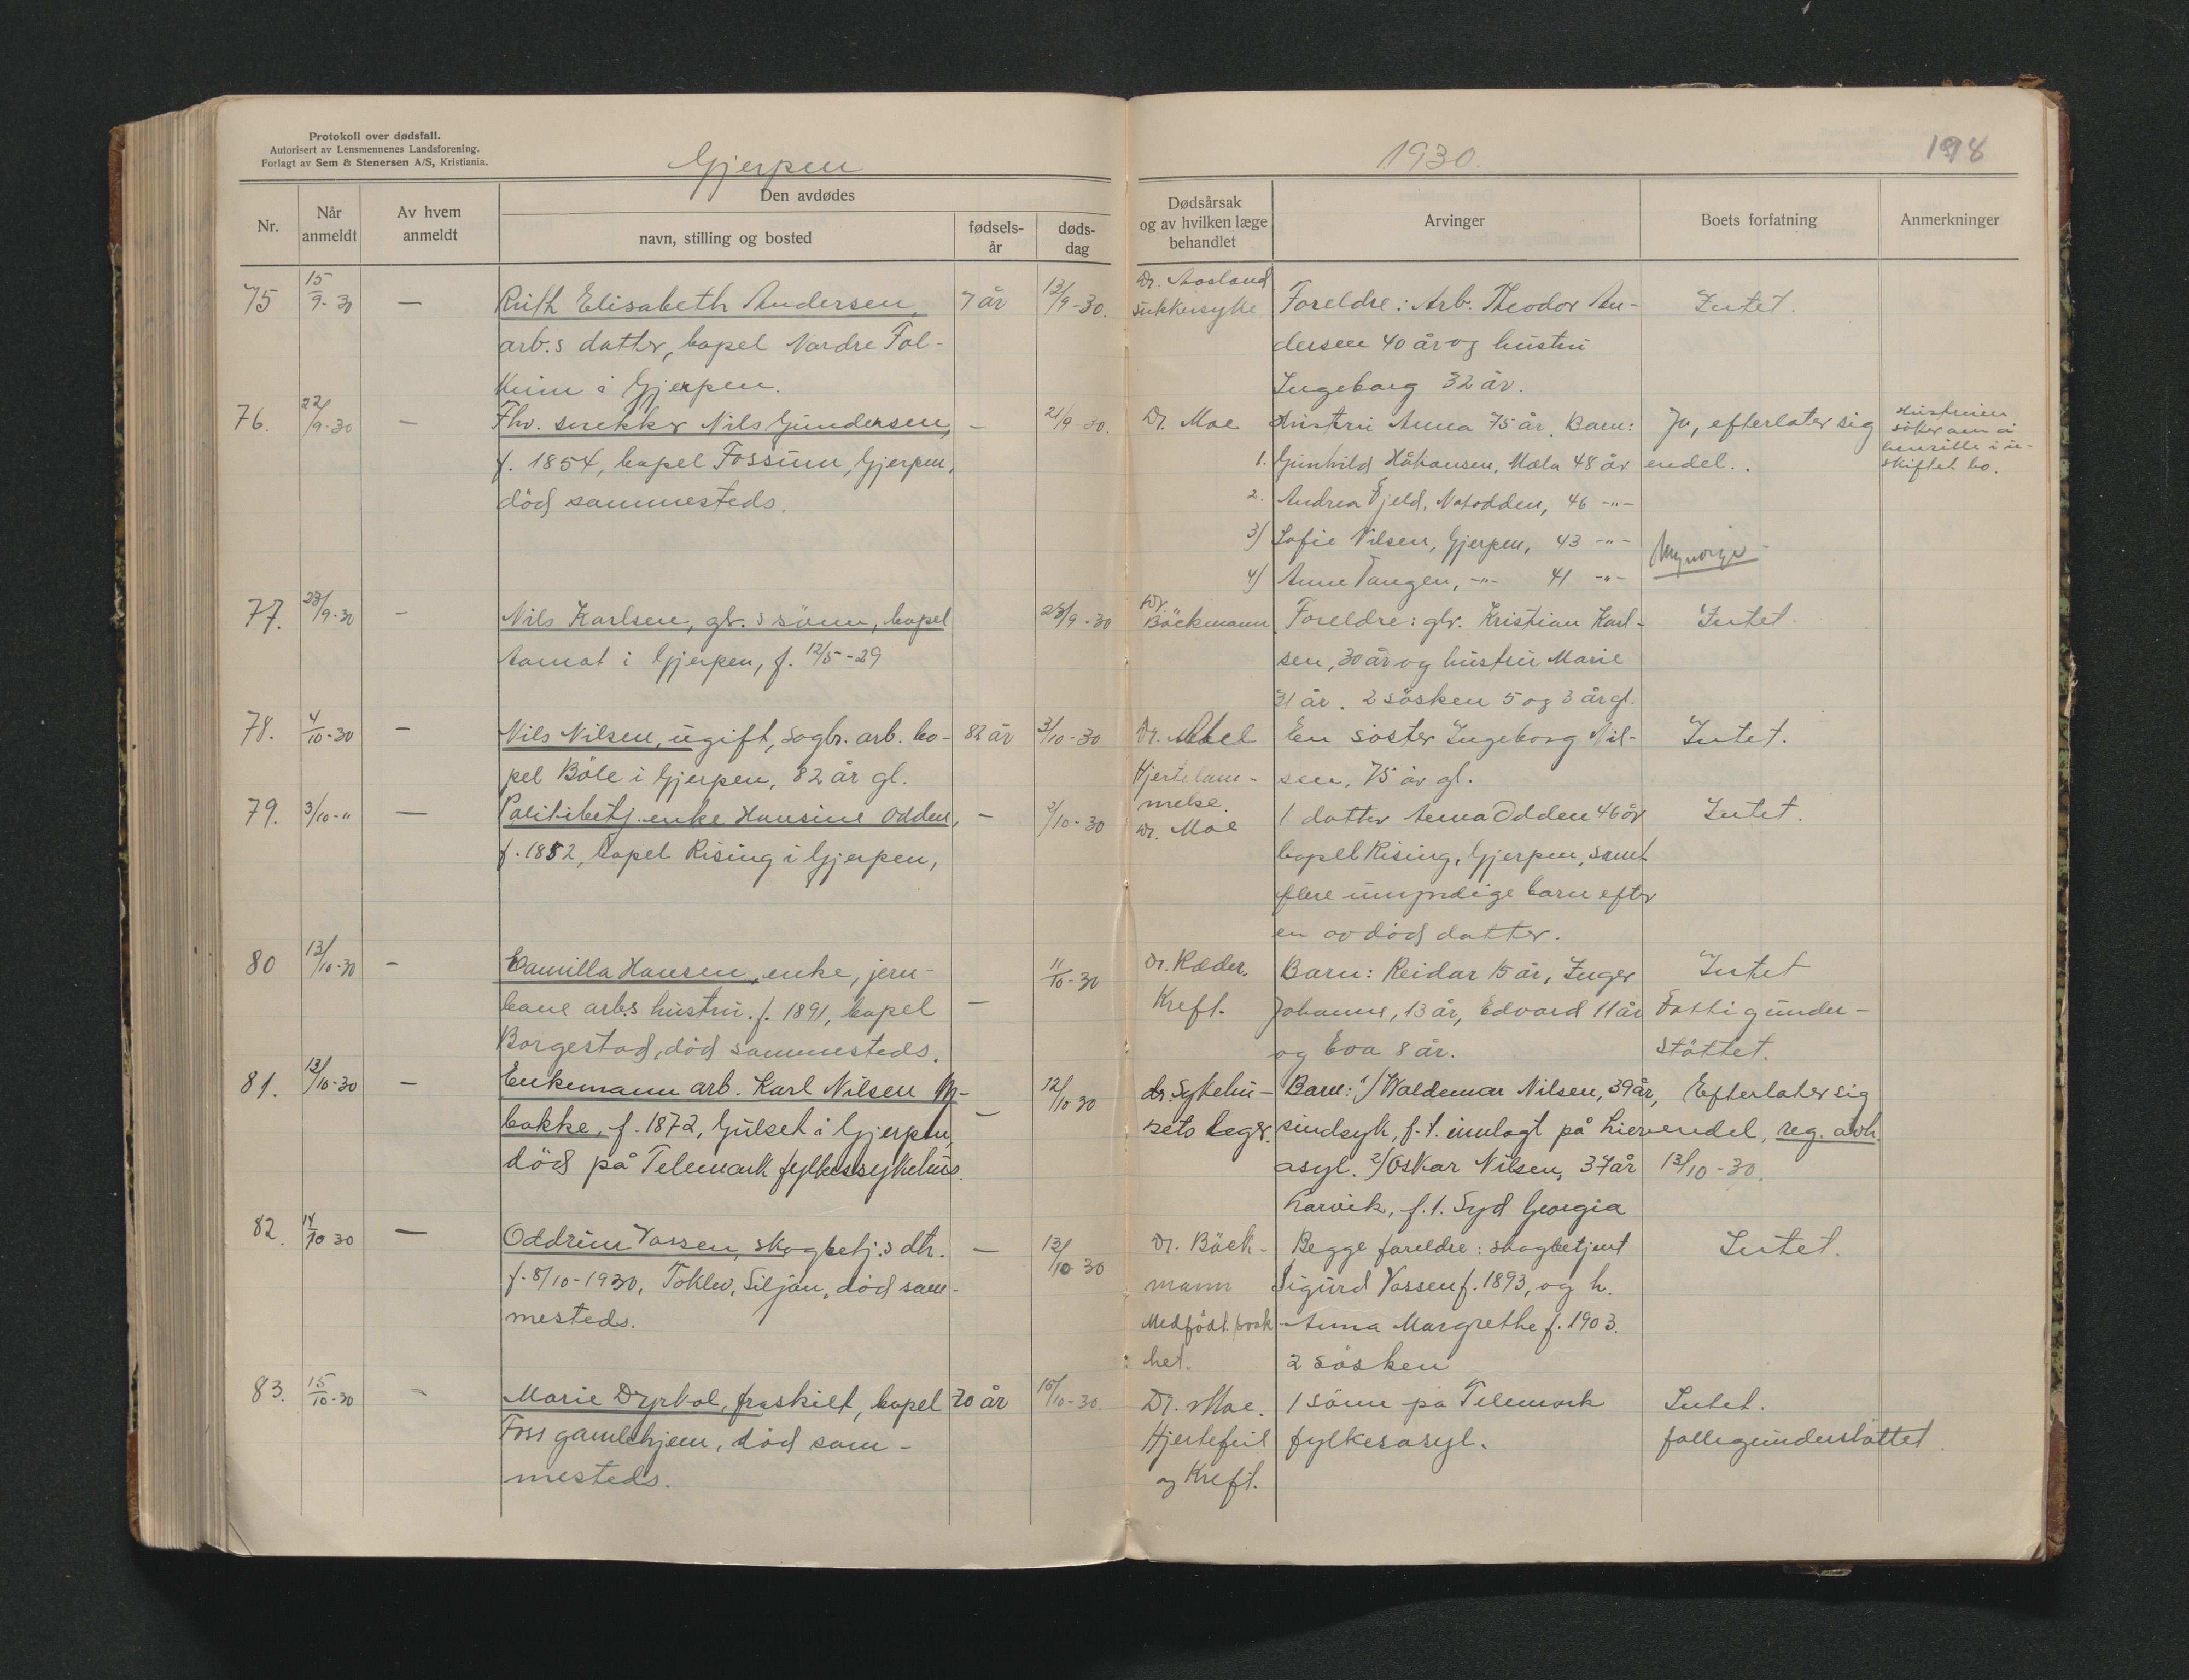 Protokoll over dødsfall.
Autorisert av Lensmennenes Landsforening.
Forlagt av Sem & Stenersen A/S, Kristiania.
Gjerpen
1930.
198
Nr.
Når anmeldt
Av hvem anmeldt
Den avdødes
navn, stilling og bosted
fødsels-år
døds-dag
Dødsårsak og av hvilken læge behandlet
Arvinger
Boets forfatning
Anmerkninger
75 15/9-30 — Ruth Elisabeth Andersen, 7 år 13/9-30. Dr. Aasland Foreldre: Arb. Theodor An- Intet.
arb.s datter, bopel Nordre Fal- sukkersyke dersen 40 år og hustru
kum i Gjerpen. Ingeborg 32 år.
76. 22/9-30 — Fhv. snekker Nils Gundersen, — 21/9-30. Dr. Moe Hustru Anna 75 år. Barn: Ja, efterlater sig Hustruen
f. 1854, bopel Fossum, Gjerpen, 1. Gunhild Håkonsen, Mæla 48 år endel. søker om å
død sammesteds. 2. Andrea Fjeld, Notodden, 46 -"- hensitte i u-
3) Sofie Nilsen, Gjerpen, 43 -"- skiftet bo.
4) Anne Tangen, -"- 41 -"- Myndige
77. 23/9-30 — Nils Karlsen, gbr.s sønn, bopel 23/9-30 Dr. Böckmann Foreldre: gbr. Kristian Karl- Intet.
Aamot i Gjerpen, f. 12/5-29 sen, 30 år og hustru Marie
31 år. 2 søsken 5 og 3 år gl.
78. 4/10-30 — Nils Nilsen, ugift, sagbr. arb. bo- 82 år 3/10-30 Dr. Abel En søster Ingeborg Nil- Intet.
pel Böle i Gjerpen, 82 år gl. Hjertelam- sen, 75 år gl.
melse.
79. 3/10-" — Politibetj. enke Hansine Odden, — 2/10-30 Dr. Moe 1 datter Anna Odden 46 år Intet.
f. 1852, bopel Rising i Gjerpen, bopel Rising, Gjerpen, samt
flere umyndige barn efter
en avdöd datter.
80 13/10-30 — Camilla Hansen, enke, jern- 11/10-30 Dr. Ræder. Barn: Reidar 15 år, Inger Intet
bane arb.s hustru. f. 1891, bopel — Kreft. Johanne, 13 år, Edvard 11 år Fattigunder-
Borgestad, död sammesteds. og Eva 8 år. støttet.
81. 13/10-30 — Enkemann arb. Karl Nilsen Ny- 12/10 30 dr. Sykehu- Barn: 1) Waldemar Nilsen, 39 år, Efterlater sig
bakke, f. 1872, Gulset i Gjerpen, — sets leger. sindsyk, f.t. innlagt på Lier endel, reg. avh.
död på Telemark fylkessykehus. asyl. 2) Oskar Nilsen, 37 år 13/10-30.
Larvik, f.t. Syd Georgia
82. 14/10 30 — Oddrun Vassen, skogbetj.s dtr. — 13/10 30 Dr. Böck- Begge foreldre: skogbetjent Intet.
f. 8/10-1930, Toklev, Siljan, död sam- mann Sigurd Vassen f. 1893, og h.
mesteds. Medfödt svak- Anna Margrethe f. 1903.
het. 2 søsken
83. 15/10-30 — Marie Dyrkol, fraskilt, bopel 70 år 15/10-30. Dr. Moe. 1 sönn på Telemark Intet.
Foss gamlehjem, död sam- Hjertefeil fylkesasyl. fattigunderstöttet.
mesteds. og Kreft.